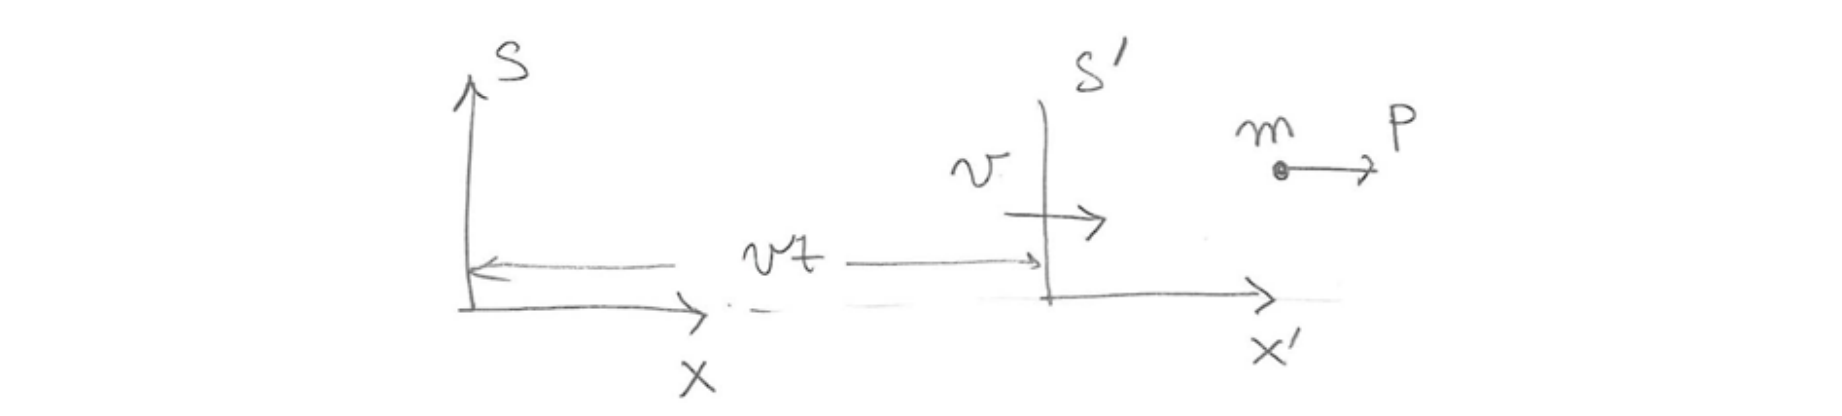 S
S'
m
P
v
vt
x
x'